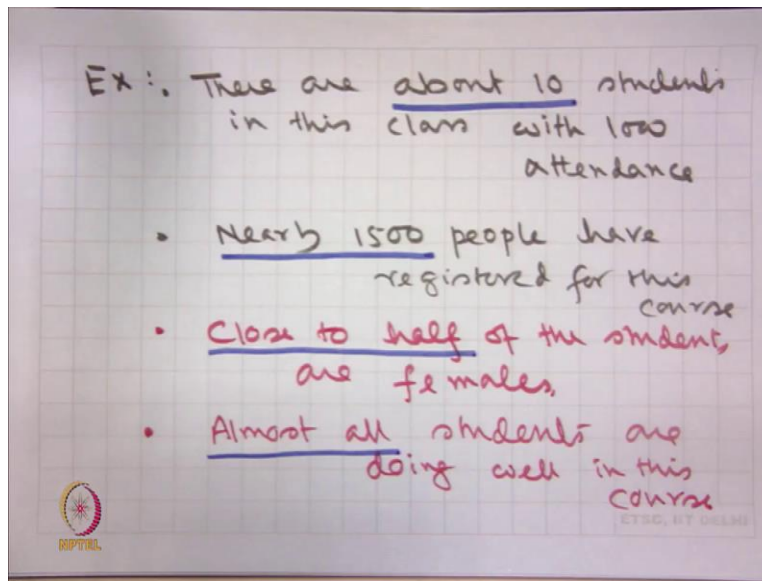 Ex:. There are about 10 students
in this class with low
attendance
• Nearly 1500 people have
registered for this
course
• Close to half of the students
are females.
• Almost all students are
doing well in this
course
NPTEL
ETSC, IIT DELHI